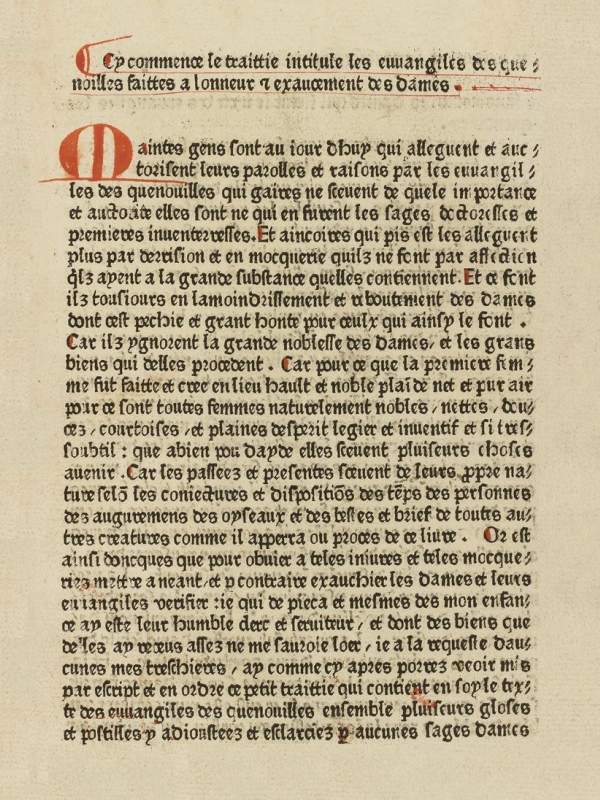 Cy commence le traittie intitule les euuangiles des que⸗
noilles faittes a lonneur ⁊ exaucement des dames.
Maintes gens sont au iour dhuy qui alleguent et auc⸗
torisent leurs parolles et raisons par les euuangil⸗
les des quenouilles qui gaires ne sceuent de quele importance
et auctorite elles sont ne qui en furent les sages doctoresses et
premieres inuenterresses. Et aincoires qui pis est les alleguent
plus par derrision et en mocquerie quilz ne font par affection
qͥlz ayent a la grande substance quelles contiennent. Et ce font
ilz tousiours en lamoindrissement et reboutement des dames
dont cest pechie et grant honte pour ceulx qui ainsy le font .
Car ilz ygnorent la grande noblesse des dames, et les grans
biens qui delles procedent . Car pour ce que la premiere fem⸗
me fut faitte et cree en lieu hault et noble plaĩ de net et pur air
pour ce sont toutes femmes naturelement nobles / nettes, dou⸗
cez / courtoises / et plaines desperit legier et inuentif et si tres⸗
soubtil : que abien pou dayde elles sceuent pluiseurs choses
auenir . Car les passeez et presentes sceuent de leurs ꝓpre na⸗
ture selõ les coniectures et dispositiõs des tẽps des personnes
des auguremens des oyseaux et des bestes et brief de toutes au⸗
tres creatures comme il apperra ou proces de ce liure . Or est
ainsi doncques que pour obuier a teles iniures et teles mocque⸗
riez mettre a neant / et y contraire exauchier les dames et leurs
euuangiles verifier : ie qui de pieca et mesmes des mon enfan⸗
ce ay este leur humble clerc et seruiteur / et dont des biens que
delles ay receus assez ne me sauroie loer / ie a la requeste dau⸗
cunes mes treschieres / ay comme cy apres porrez veoir mis
par escript et en ordre ce petit traittie qui contient en soy le tex⸗
te des euuangiles des quenouilles ensemble pluiseurs gloses
et postilles y adiousteez et esclarciez p aucunes sages dames